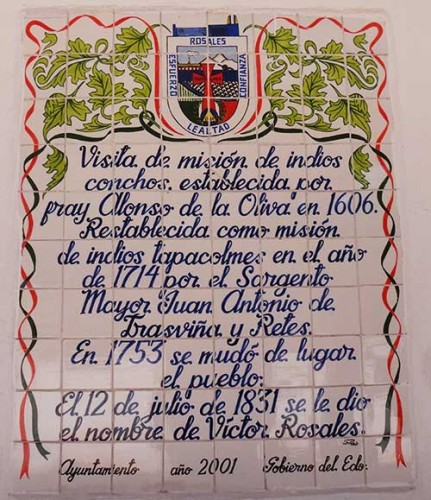 ROSALES
ESFUERZO
CONFIANZA
LEALTAD
Visita de misión de indios
conchos, establecida por
fray Alonso de la Oliva en 1606.
Restablecida como misión
de indios tapacolmes en el año
de 1714 por el Sargento
Mayor Juan Antonio de
Trasviña y Retes.
En 1753 se mudó de lugar
el pueblo.
El 12 de julio de 1831 se le dio
el nombre de Víctor Rosales.
Ayuntamiento año 2001 Gobierno del Edo.